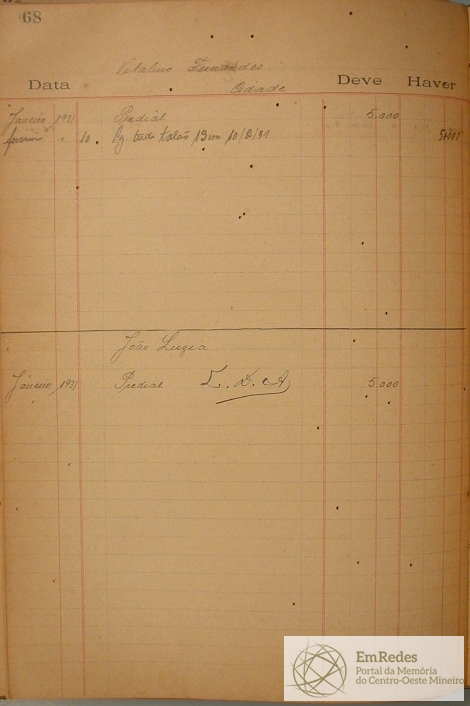 68
Vitalino Fernandes
Cidade
Data Deve Haver
Janeiro 1931 Predial 5.000
" 10. Pg. tudo talão 19 em 10/2/31 5.000
João Luzia
Janeiro 1931 Predial 5.000
EmRedes
Portal da Memória
do Centro-Oeste Mineiro